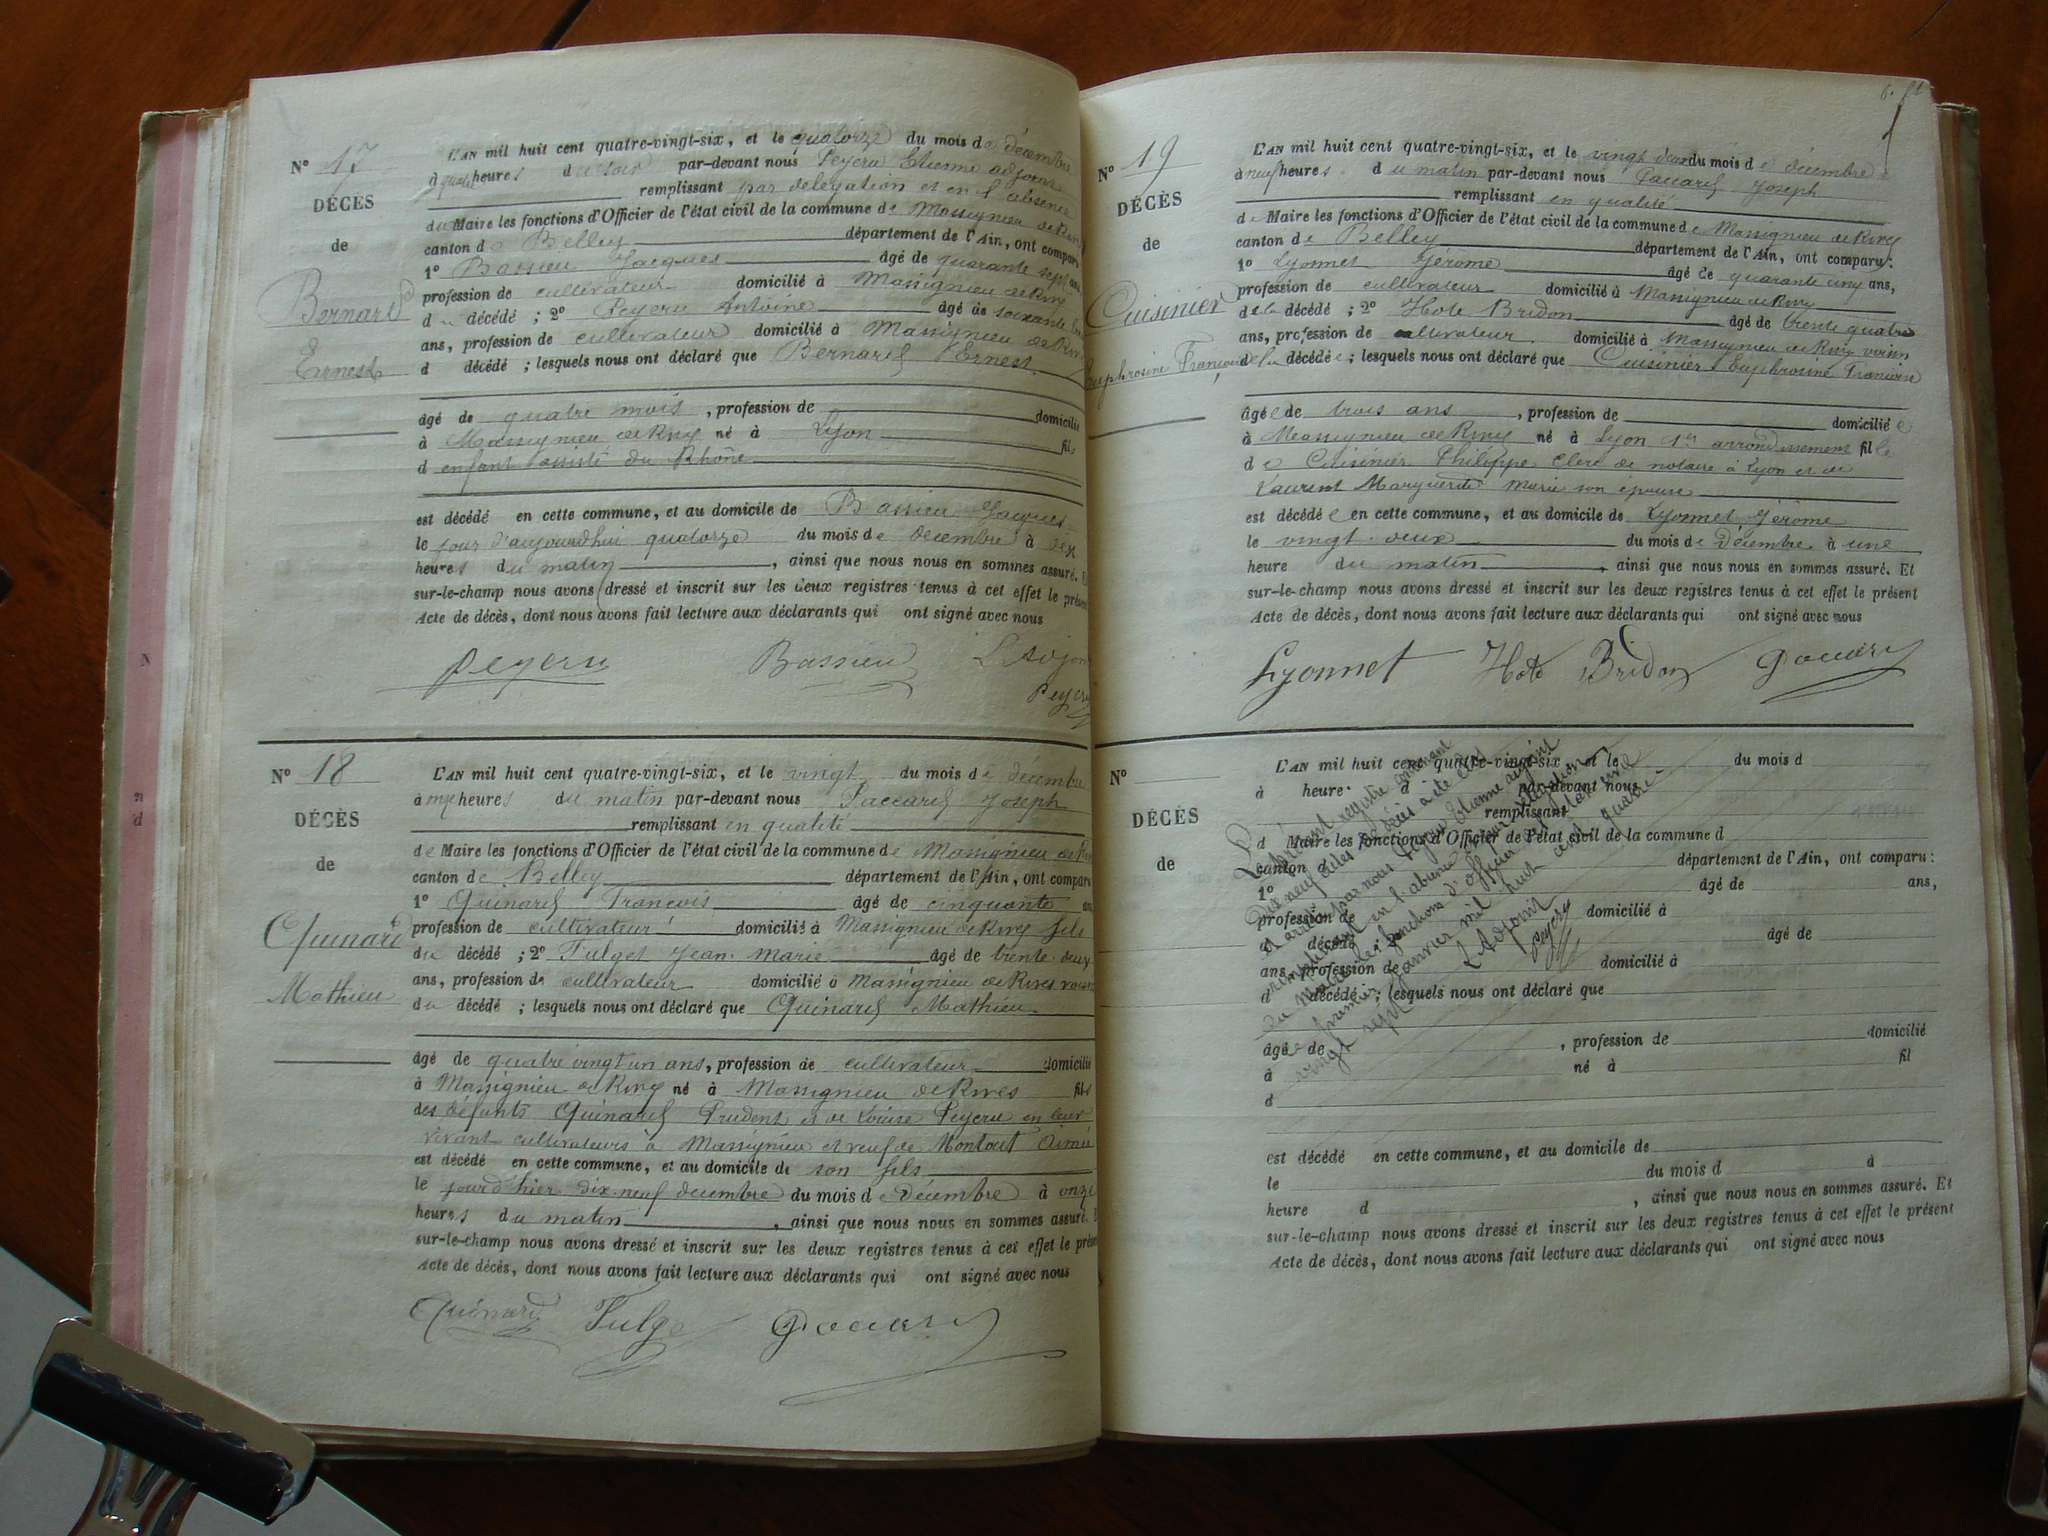 N° 17
DÉCÈS
de
Bernard
Ernest
L'AN mil huit cent quatre-vingt-six, et le quatorze du mois de décembre
à quatre heures du soir par-devant nous Peyeru Etienne adjoint
remplissant par délégation et en l'absence
du Maire les fonctions d'Officier de l'état civil de la commune de Massignieu de Rives
canton de Belley département de l'Ain, ont comparu
1° Bassieu Jacques âgé de quarante sept ans,
profession de cultivateur domicilié à Massignieu de Rives
du décédé ; 2° Peyeru Antoine âgé de soixante
ans, profession de cultivateur domicilié à Massignieu de Rives
d décédé ; lesquels nous ont déclaré que Bernard Ernest
âgé de quatre mois, profession de domicilié
à Massignieu de Rives né à Lyon fils
d enfant assisté du Rhône
est décédé en cette commune, et au domicile de Bassieu Jacques
le jour d'aujourdhui quatorze du mois de décembre à dix
heures du matin, ainsi que nous nous en sommes assuré. Et
sur-le-champ nous avons dressé et inscrit sur les deux registres tenus à cet effet le présent
Acte de décès, dont nous avons fait lecture aux déclarants qui ont signé avec nous
Peyeru Bassieu L'Adjoint
Peyeru
N° 18
DÉCÈS
de
Quinard
Mathieu
L'AN mil huit cent quatre-vingt-six, et le vingt du mois de décembre
à onze heures du matin par-devant nous Paccard Joseph
remplissant en qualité
de Maire les fonctions d'Officier de l'état civil de la commune de Massignieu de Rives
canton de Belley département de l'Ain, ont comparu
1° Quinard François âgé de cinquante ans
profession de cultivateur domicilié à Massignieu de Rives fils
du décédé ; 2° Fulget Jean Marie âgé de trente deux
ans, profession de cultivateur domicilié à Massignieu de Rives voisin
du décédé ; lesquels nous ont déclaré que Quinard Mathieu
âgé de quatre vingt un ans, profession de cultivateur domicilié
à Massignieu de Rives né à Massignieu de Rives fils
des défunts Quinard Prudent et de Louise Peyeru en leur
vivant cultivateurs à Massignieu et veuf de Aimée
est décédé en cette commune, et au domicile de son fils
le jour d'hier dix-neuf decembre du mois de Décembre à onze
heures du matin, ainsi que nous nous en sommes assuré. Et
sur-le-champ nous avons dressé et inscrit sur les deux registres tenus à cet effet le présent
Acte de décès, dont nous avons fait lecture aux déclarants qui ont signé avec nous
Quinard Fulget Paccard
N° 19
DÉCÈS
de
Cuisinier
Euphrosine Françoise
L'AN mil huit cent quatre-vingt-six, et le vingt deux du mois de décembre
à neuf heures du matin par-devant nous Paccard Joseph
remplissant en qualité
de Maire les fonctions d'Officier de l'état civil de la commune de Massignieu de Rives
canton de Belley département de l'Ain, ont comparu :
1° Lyonnet Jérome âgé de quarante cinq ans,
profession de cultivateur domicilié à Massignieu de Rives
de la décédé ; 2° Hote Bridon âgé de trente quatre
ans, profession de cultivateur domicilié à Massignieu de Rives voisin
de la décédée ; lesquels nous ont déclaré que Cuisinier Euphrosine Francoise
âgée de trois ans, profession de domiciliée
à Massignieu de Rives né à Lyon 1er arrondissement fille
de Cuisinier Philippe clerc de notaire à Lyon et de
Laurent Marguerite Marie son épouse
est décédée en cette commune, et au domicile de Lyonnet Jérome
le vingt deux du mois de Décembre à une
heure du matin, ainsi que nous nous en sommes assuré. Et
sur-le-champ nous avons dressé et inscrit sur les deux registres tenus à cet effet le présent
Acte de décès, dont nous avons fait lecture aux déclarants qui ont signé avec nous
Lyonnet Hote Bridon Paccard
N°
DÉCÈS
de
L'AN mil huit cent quatre-vingt-six et le du mois d
à heure d par-devant nous
remplissant
d Maire les fonctions d'Officier de l'état civil de la commune d
canton d département de l'Ain, ont comparu :
1° âgé de ans,
profession de domicilié à
d décédé ; 2° âgé de
ans, profession de domicilié à
d décédé ; lesquels nous ont déclaré que
âgé de , profession de domicilié
à né à fil
d
est décédé en cette commune, et au domicile de
le du mois d à
heure d , ainsi que nous nous en sommes assuré. Et
sur-le-champ nous avons dressé et inscrit sur les deux registres tenus à cet effet le présent
Acte de décès, dont nous avons fait lecture aux déclarants qui ont signé avec nous
Le présent registre contenant
dix neuf actes de décès a été clos
et arrêté par nous Peyeru Etienne adjoint
remplissant en l'absence et par délégation
du Maire les fonctions d'officier de l'état civil
premier janvier mil huit cent quatre
vingt sept
L'Adjoint
Peyeru